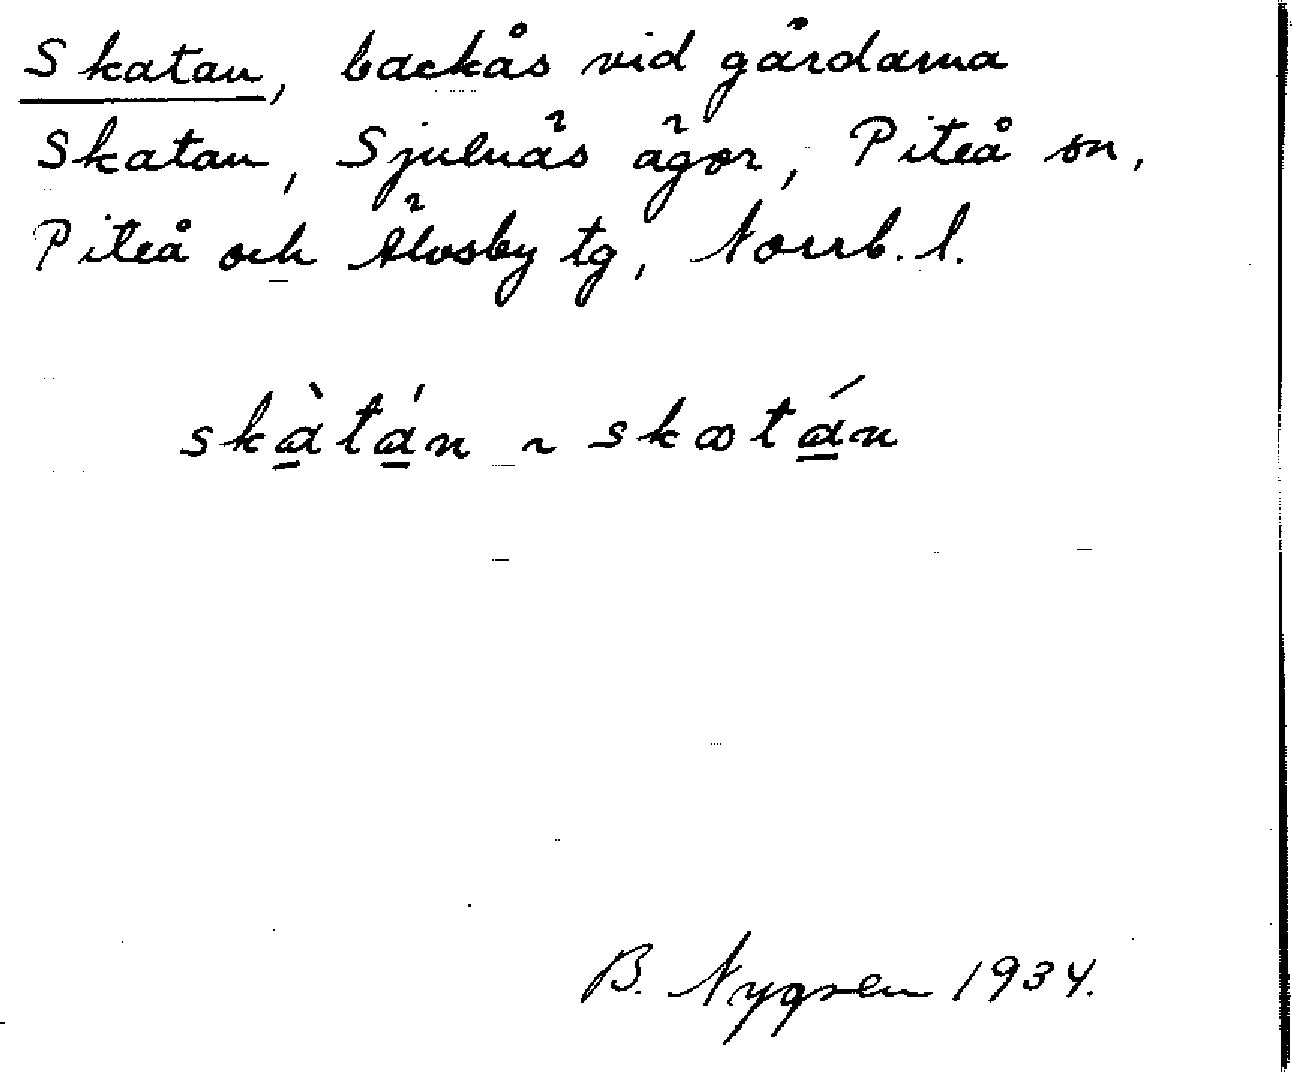 Skatan, backås vid gårdarna
Skatan, Sjulnäs ägor, Piteå sn,
Piteå och Älvsby tg, Norrb. l.
skàtán ~ skætán
B. Nygren 1934.